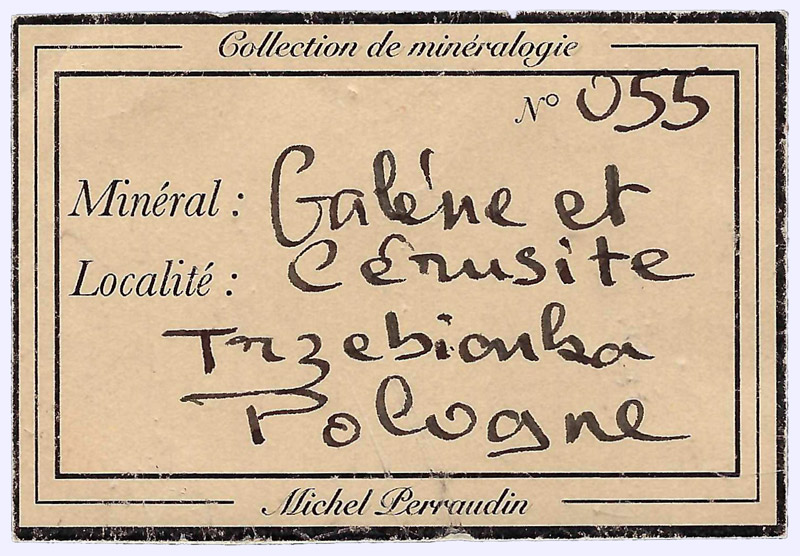 Collection de minéralogie
N° 055
Minéral : Galène et
Localité : Cérusite
Trzebionka
Pologne
Michel Perraudin